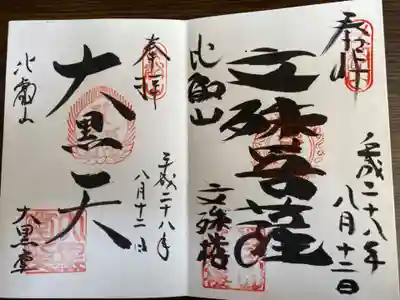 奉拝
文殊菩薩
比叡山
文殊楼
平成二十八年
八月十二日
奉拝
大黒天
比叡山
大黒堂
平成二十八年
八月十二日